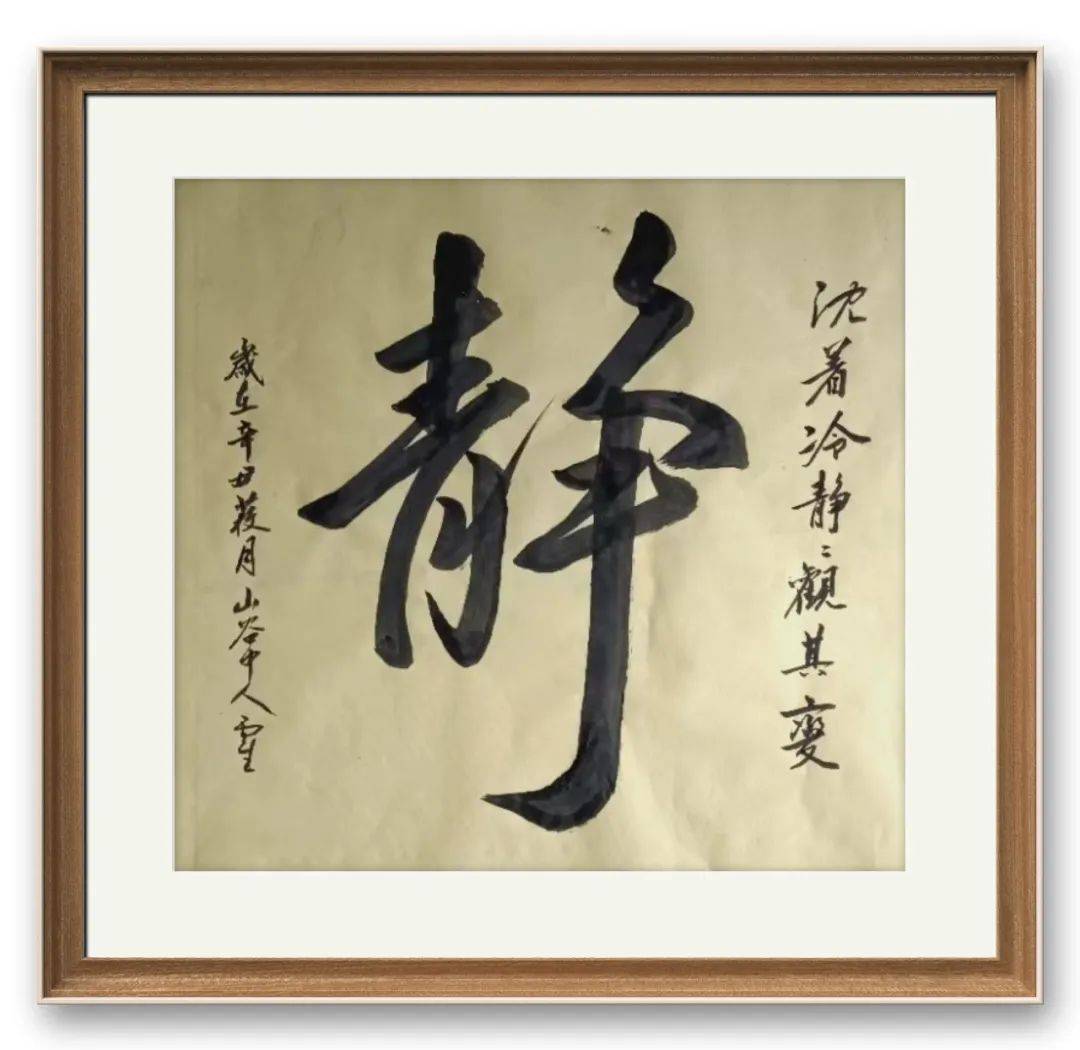 沈着冷静〻觀其變
静
歲在辛丑葭月山谷中人